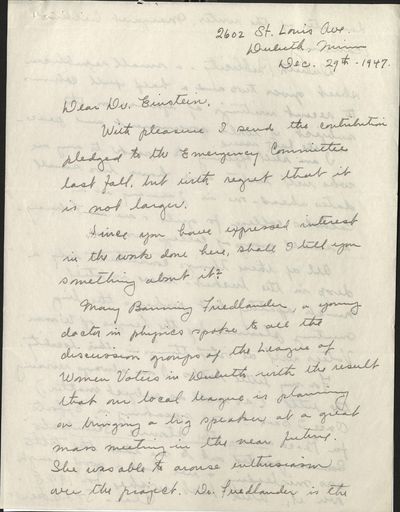 2602 St. Louis Ave.
Duluth, Minn
Dec. 29th - 1947.
Dear Dr. Einstein,
With pleasure I send the contribution
pledged to the Emergency Committee
last fall, but with regret that it
is not larger.
Since you have expressed interest
in the work done here, shall I tell you
something about it?
Mary Banning Friedlander, a young
doctor in physics spoke to all the
discussion groups of the League of
Women Voters in Duluth with the result
that our local league is planning
on bringing a big speaker at a great
mass meeting in the near future.
She was able to arouse enthusiasm
over the project. Dr. Friedlander is the